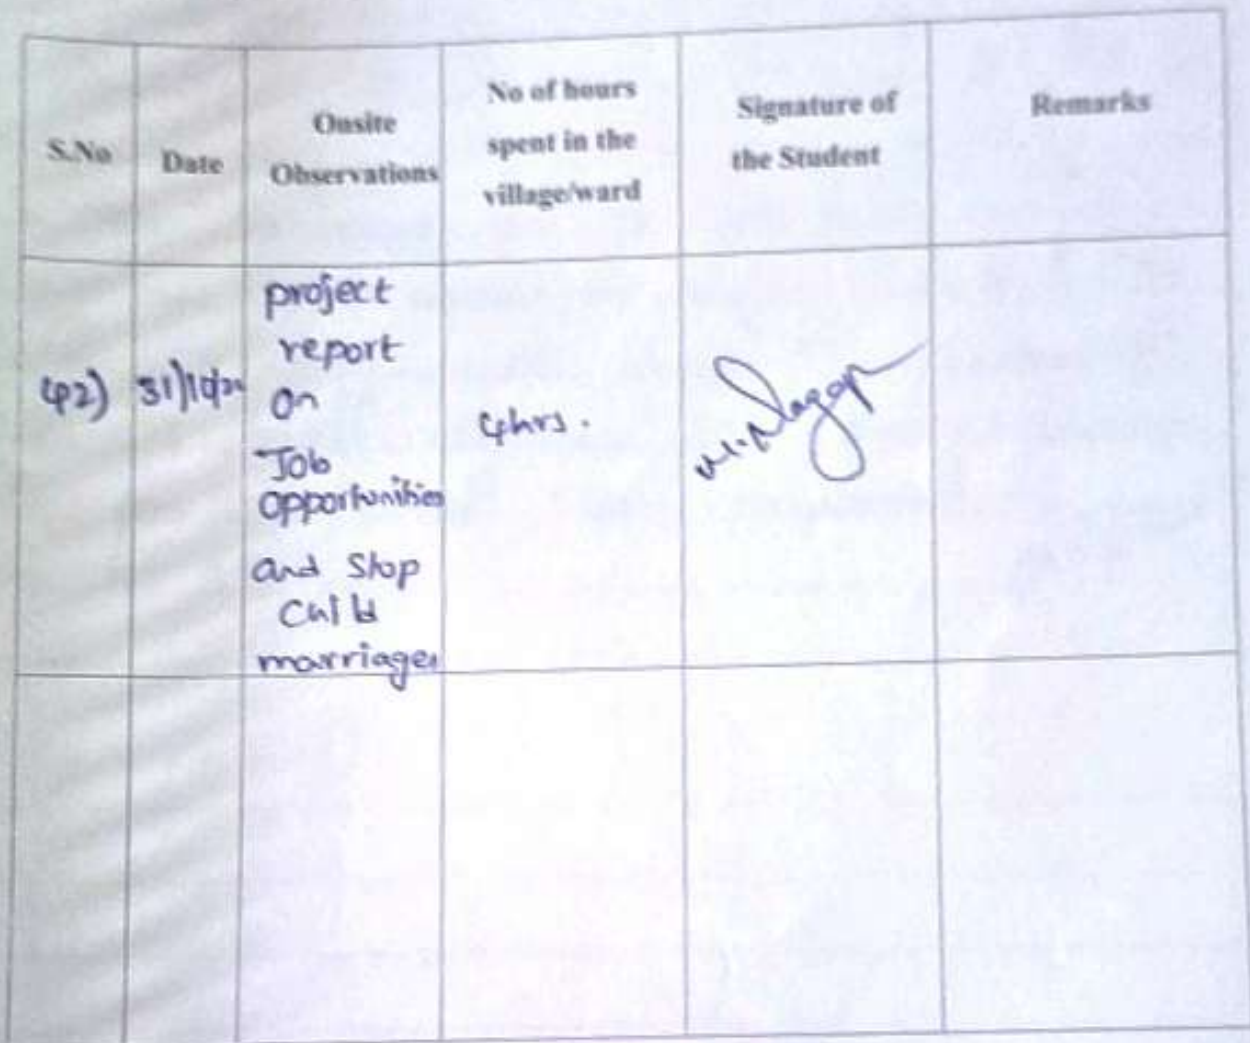 S.No
Date
Onsite
Observations
No of hours
spent in the
village/ward
Signature of
the Student
Remarks
42)
project
report
on
Job
opportunities
and Stop
Child
marriages
4hrs.